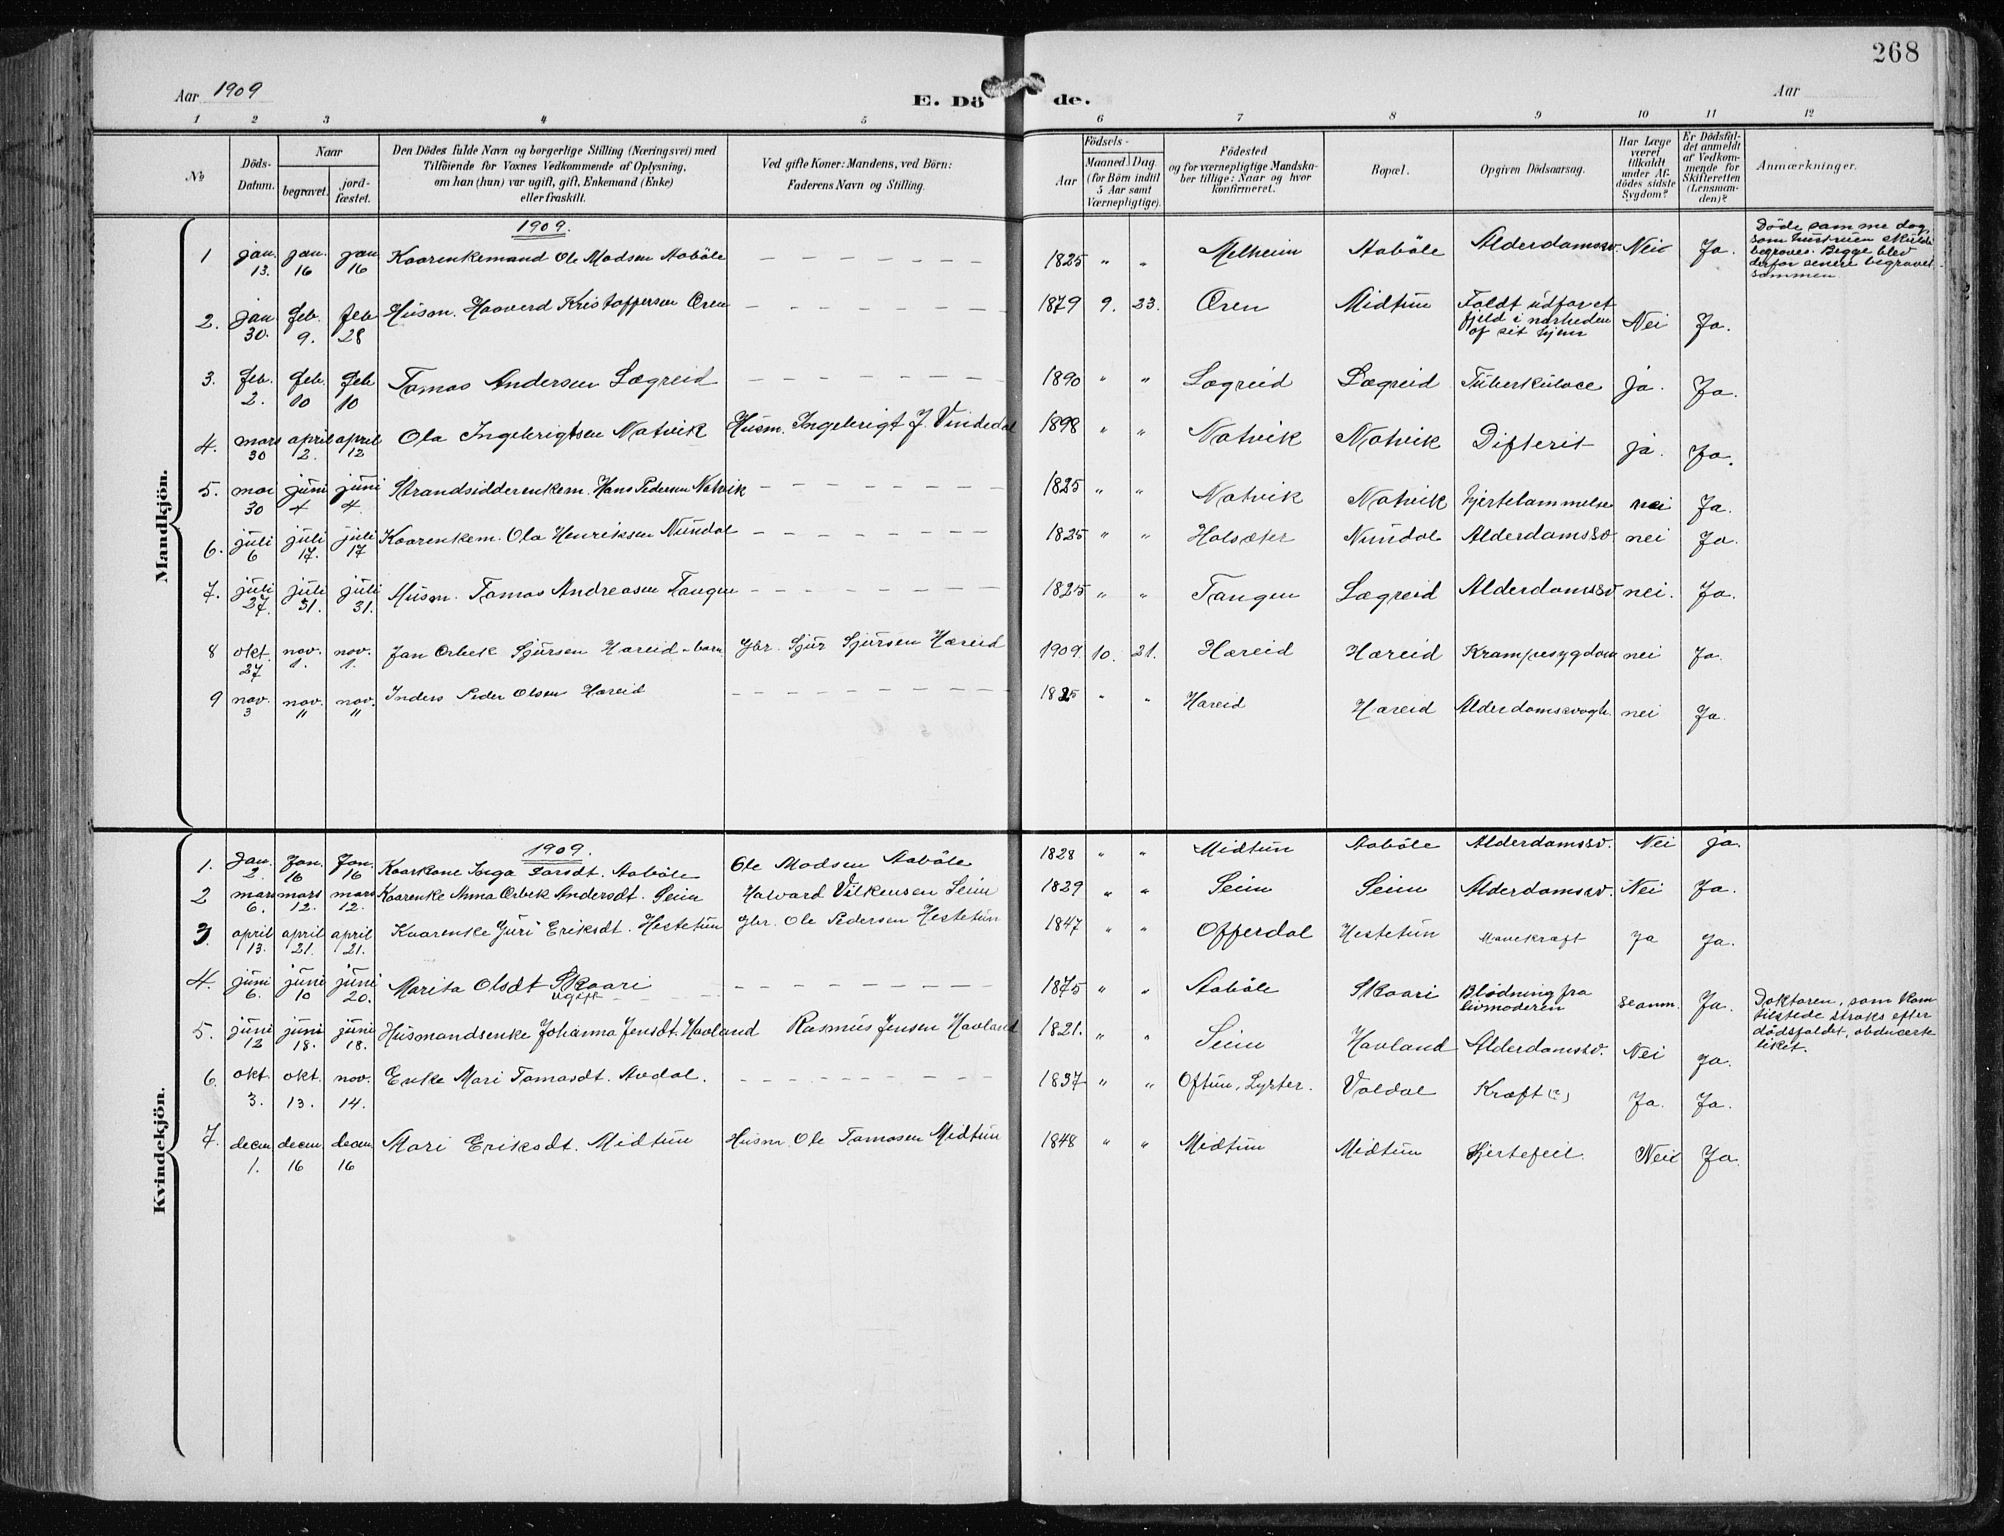 268
Aar 1909
E. Dö de.
Aar
1 2 3 4 5 6 7 8 9 10 11 12
No
Döds-Datum.
Naar
begravet.
jord-fæstet.
Den Dödes fulde Navn og borgerlige Stilling (Næringsvei) med
Tilföiende for Voxnes Vedkommende af Oplysning,
om han (hun) var ugift, gift, Enkemand (Enke)
eller fraskilt.
Ved gifte Koner: Mandens, ved Börn:
Faderens Navn og Stilling.
Födsels-
Aar
Maaned Dag
(for Börn indtil
5 Aar samt
Værnepligtige).
Födested
og for værnepligtige Mandska-
ber tillige: Naar og hvor
konfirmeret.
Bopæl.
Opgiven Dödsaarsag.
Har Læge
været
tilkaldt
under Af-
dödes sidste
Sygdom?
Er Dödsfal-
det anmeldt
af Vedkom-
mende for
Skifteretten
(Lensman-
den)?
Anmærkninger.
Mandkjön.
1909.
1 jan. 13. jan. 16 jan 16 Kaarenkemand Ole Madsen Aaböle — 1825 " " Melheim Aaböle Alderdomssv. Nei Ja. Döde samme dag, som hustruen skulde begraves. Begge blev derfor senere begravet sammen
2. jan 30. feb. 9. feb 28 Husm. Haaverd Kristoffersen Øren — 1879 9. 23. Øren Midtun Faldt udfor et fjeld i nærheden af sit hjem Nei Ja.
3. feb. 2. feb. 10 feb 10 Tomas Andersen Lægreid — 1890 " " Lægreid Lægreid Tuberkulose ja. Ja.
4. mars 30 april 2. april 12 Ola Ingebrigtsen Natvik Husm. Ingebrigt J. Vindedal 1898 " " Natvik Natvik Difterit ja. Ja.
5. mai 30 juni 4 juni 4. Strandsidderenkem. Hans Pedersen Natvik — 1825 " " Natvik Natvik hjertelammelse nei Ja.
6. juli 6 juli 17. juli 17 Kaarenkem. Ola Henriksen Nundal — 1825 " " Holsæter Nundal Alderdomssv nei Ja.
7. juli 27. juli 31. juli 31. Husm. Tomas Andreasen Tangen — 1825 " " Tangen Lægreid Alderdomssv nei. Ja.
8 okt. 27 nov. 1. nov. 1. Jan Orbek Sjursen Hæreid - barn Gbr. Sjur Sjursen Hæreid 1909. 10. 21. Hæreid Hæreid Krampesygdom nei Ja.
9 nov. 3 nov. 11 nov. 11 Inders Peder Olsen Hæreid — 1825 " " Hæreid Hæreid Alderdomssvagh. nei Ja.
Kvindekjön.
1909.
1. Jan. 2. Jan. 16 Jan. 16 Kaarkone Larsdt. Aaböle Ole Madsen Aaböle 1828 " " Midtun Aaböle Alderdomssv. Nei ja.
2 mars 6. mars 12. mars 12. Kaarenke Anna Orbek Andersdt. Seim Halvard Vilkensen Seim 1829 " " Seim Seim Alderdomssv. Nei Ja.
3 april 13. april 21. april 21. Kaarenke Guri Eriksdt. Hestetun Gbr. Ole Pedersen Hestetun 1847 " " Offerdal Hestetun Mavekræft Ja Ja.
4. juni 6. juni 10 juni 20. Marita Olsdt Skaari ugift — 1875 " " Aaböle Skaari Blödning fra livmoderen Ja. Doktoren, som kom tilstede straks efter dödsfaldet, obducerte liket.
5. juni 12 juni 18. juni 18. Husmandsenke Johanna Jensdt. Havland Rasmus Jensen Havland 1821. " " Seim Havland Alderdomssv. Nei Ja.
6. okt. 3. okt. 13. nov. 14. Enke Mari Tomasdt. Avdal. — 1837 " " Oftun, Lyster. Voldal Kræft (?) Ja. Ja.
7. decm. 1. decm. 16 decm. 16 Mari Eriksdt. Midtun Husm Ole Tomasen Midtun 1848 " " Midtun Midtun Hjertefeil. Nei Ja.